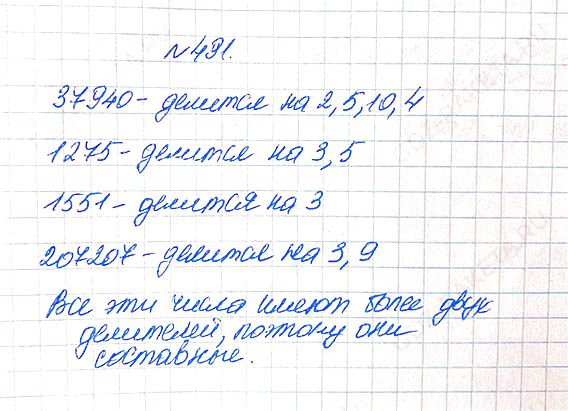 №491.
37940 - делится на 2, 5, 10, 4
1275 - делится на 3, 5
1551 - делится на 3
207207 - делится на 3, 9
Все эти числа имеют более двух
делителей, поэтому они
составные.